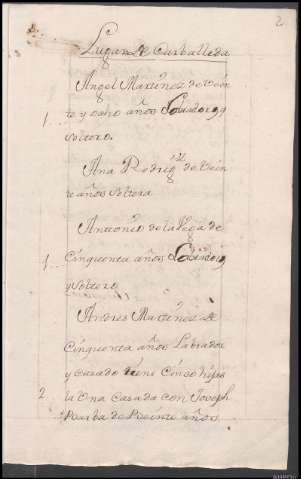 2
Lugar de Carballeda
Angel Martinez de Vein
te y ocho años Labrador y
1 soltero.
Ana Rodrig.ez de Vein
te años soltera
Antonio de la Vega de
1 Cinquenta años Labrador
y soltero
Andres Martinez de
Cinquenta años Labrador
y Casado tiene Cinco hijas
2 la Una Casada con Joseph
de Veinte años